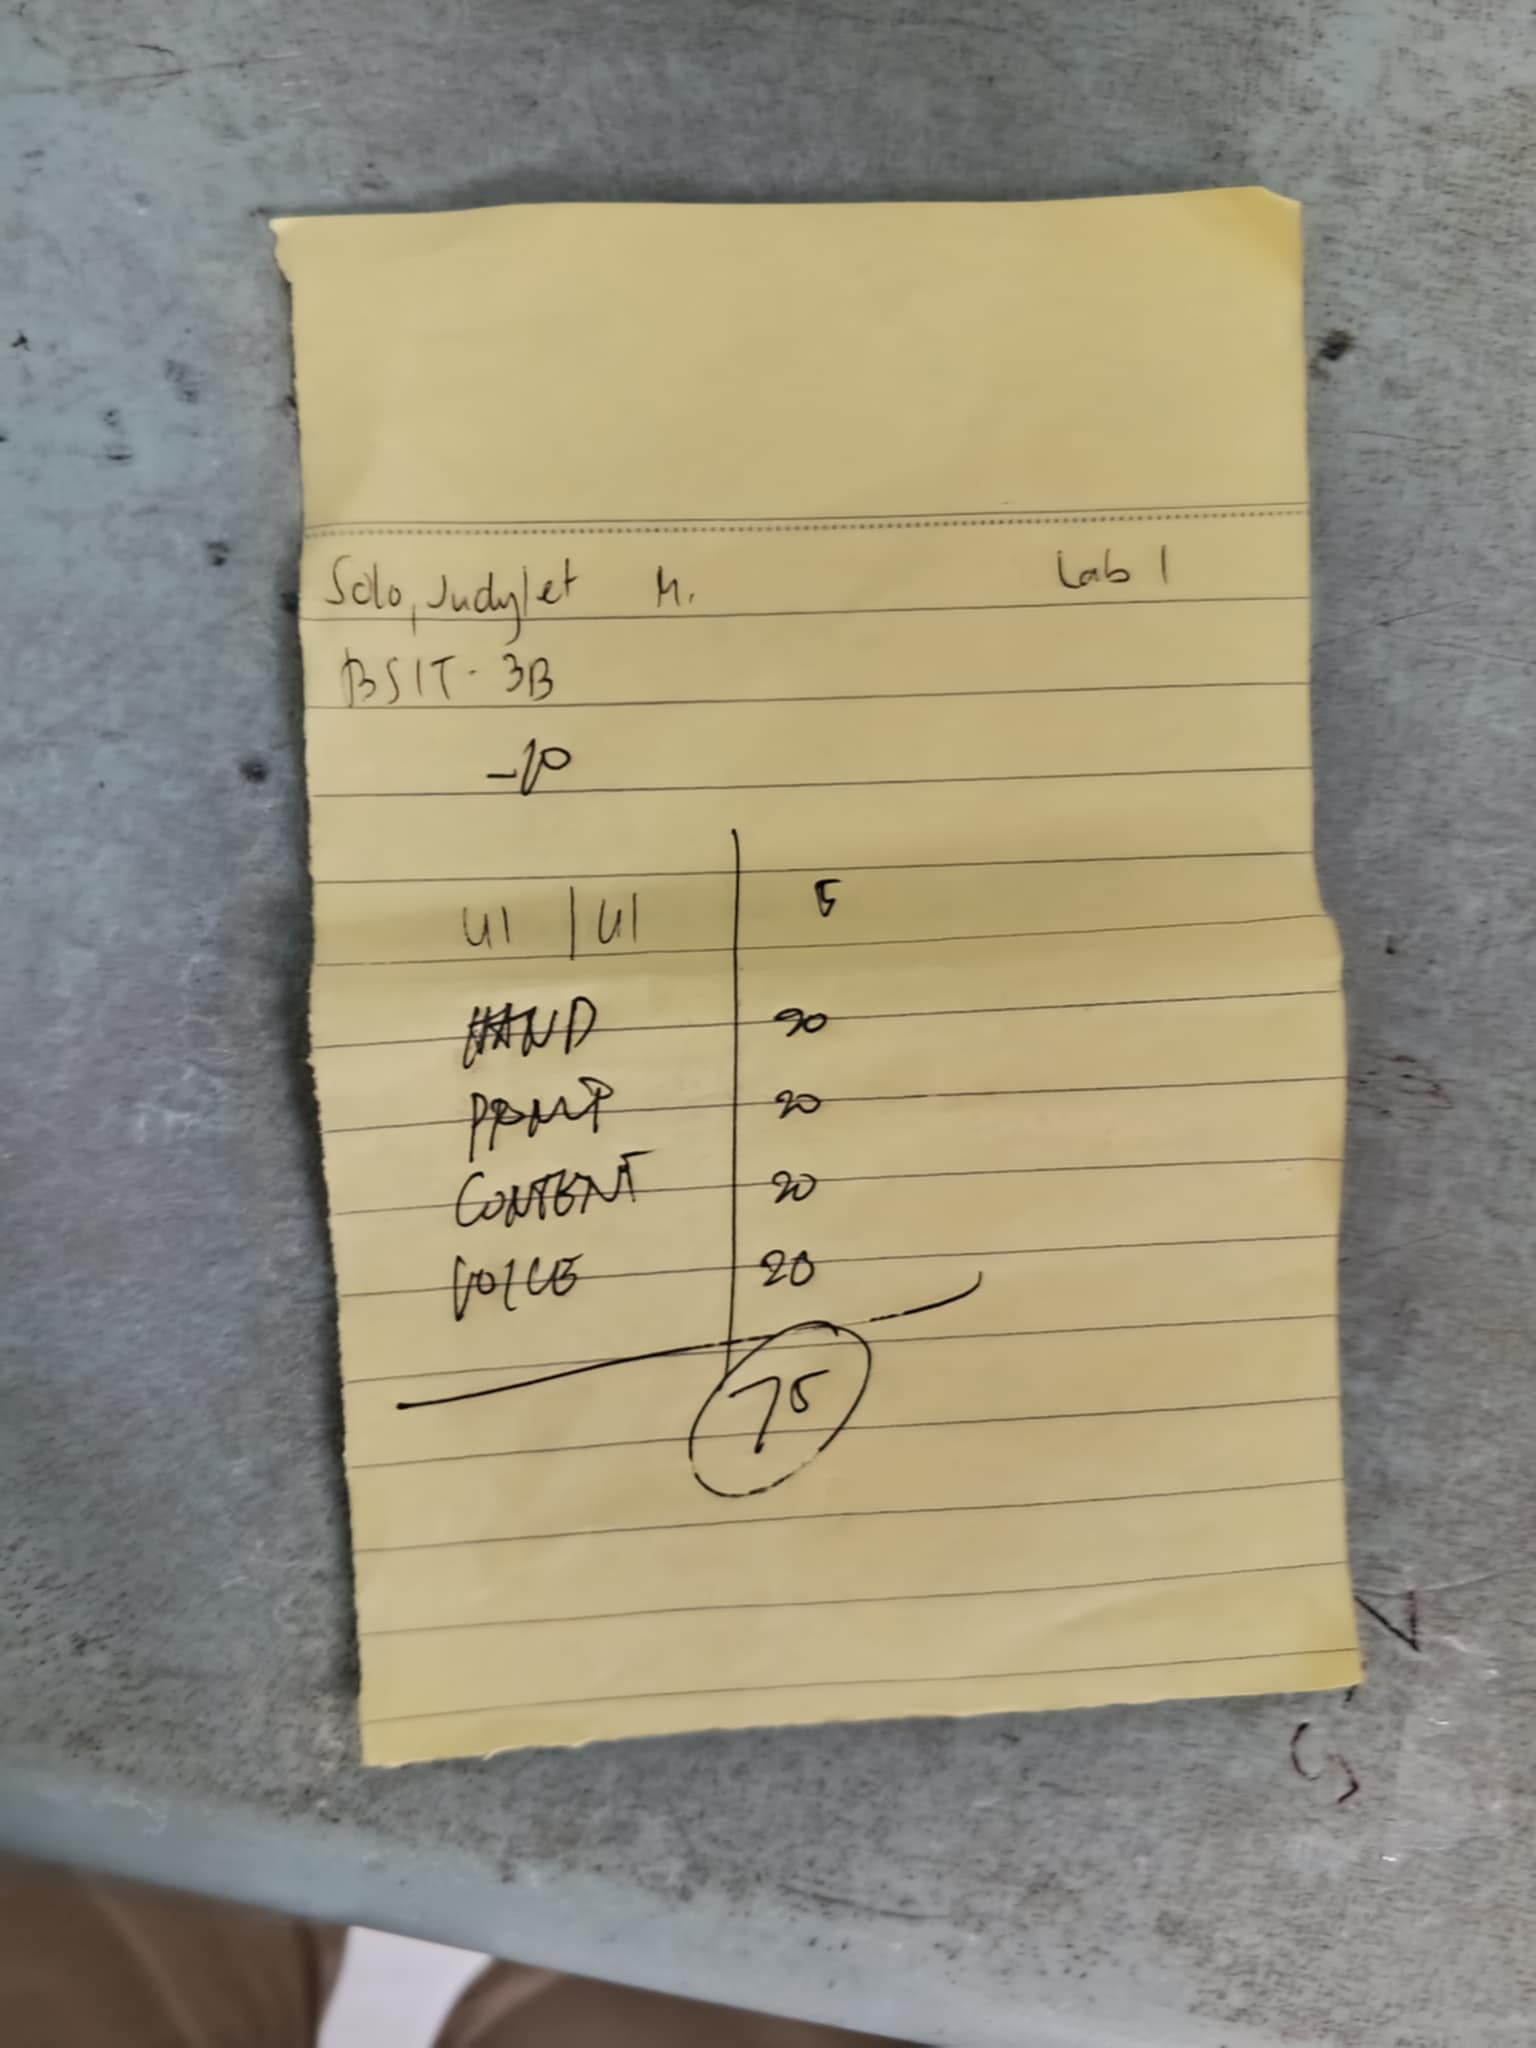 Solo, Judylet M. Lab 1
BSIT - 3B
-10
UI | UI 5
HAND 20
PROMP 20
CONTENT 20
VOICE 20
75